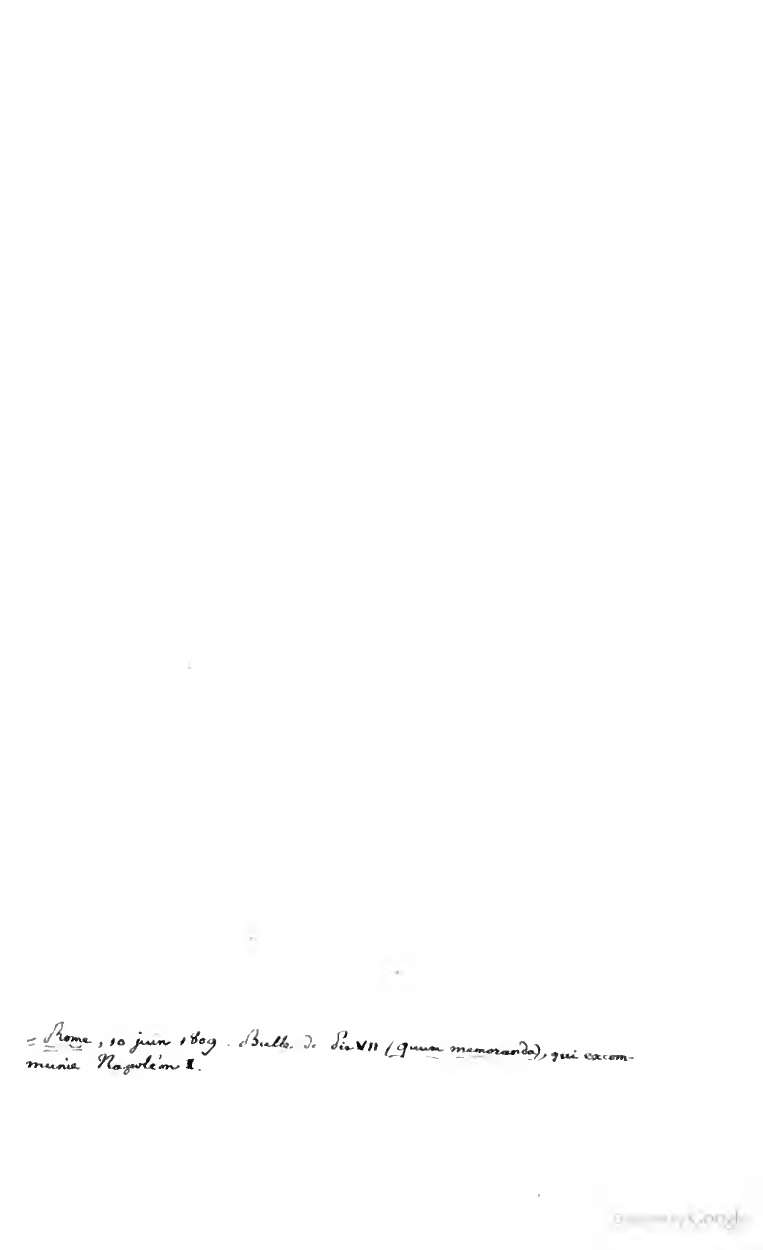 = Rome, 10 juin 1809. Bulle de Pie VII (quum memoranda), qui excom-
munie Napoléon I.
Digitized by Google